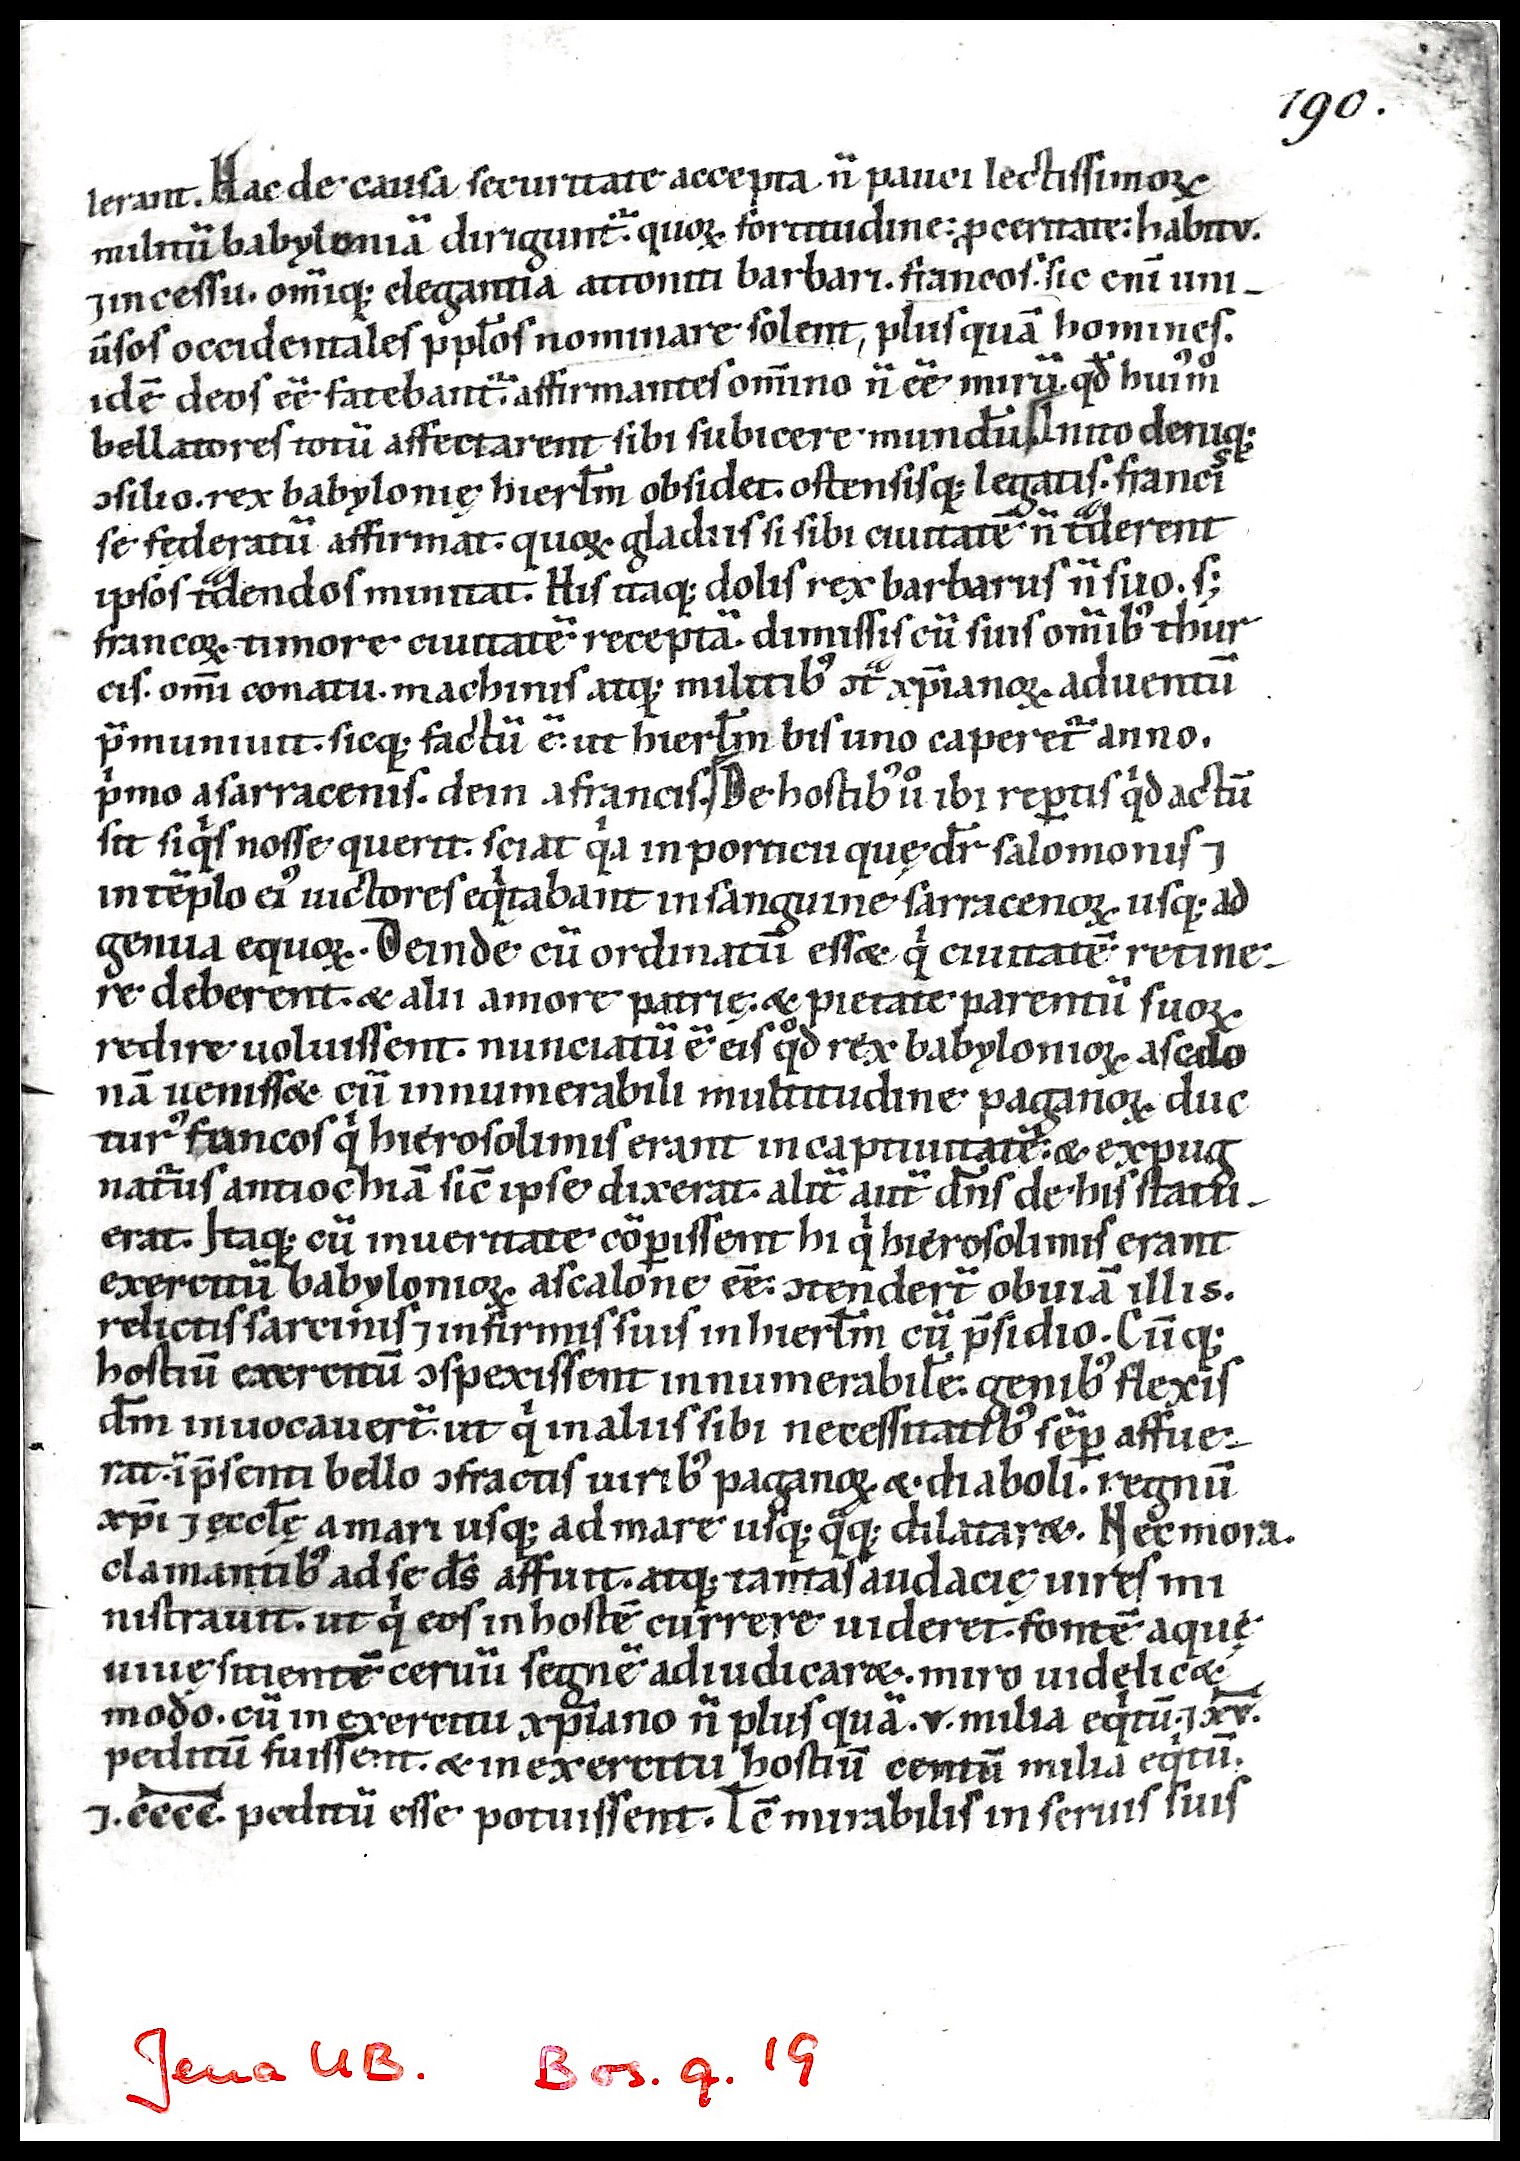 190.
lerant. Hac de causa securitate accepta n̄ pauci lectissimoꝝ
militū babyloniā dirigunt᷑. quoꝝ fortitudine: ꝓceritate: habitu.
⁊ incessu. om̄iq; elegantia attoniti barbari. francos. sic eni͂ uni-
u͂sos occidentales pp̄los nominare solent, plusquā homines.
idē deos ee͂ fatebant᷑. affirmantes om̄ino n̄ ee͂ mirū. qđ hui᷒mͦ
bellatores totū affectarent sibi subicere mundū. Inito deniq;
ↄsilio. rex babylonię hierłm obsidet. ostensisq; legatis. francis
se fęderatū affirmat. quoꝝ gladiis si sibi ciuitatē n̄ tͣderent
ipsos tͣdendos minitat. His itaq; dolis rex barbarus n̄ suo. s;
francoꝝ timore ciuitatē receptā. dimissis cū suis om̄ib᷒ thur
cis. om̄i conatu. machinis atq; militib᷒ ↄtͣ xp̄ianoꝝ aduentū
p̄muniuit. sicq; factū ē. ut hierłm bis uno caperet᷑ anno.
pͥmo a sarracenis. dein a francis. De hostib᷒ uͦ ibi rep̱tis qͥd actū
sit siqͥs nosse querit. sciat qͥa in porticu quę dr̄ salomonis ⁊
in tēplo ei᷒ uictores eqͥtabant in sanguine sarracenoꝝ usq; ad
genua equoꝝ. Deinde cū ordinatū ess& qͥ ciuitatē retine-
re deberent. & alii amore patrię. & pietate parentū suoꝝ
redire uoluissent. nunciatū ē eis qͦd rex babylonioꝝ ascalo
nā ueniss& cū innumerabili multitudine paganoꝝ duc
tur᷒ francos qͥ hierosolimis erant in captiuitatē. & expug
naturus antiochiā sic̄ ipse dixerat. alit᷑ aut̄ dn̄s de his statu-
erat. Itaq; cū in ueritate cōp̱issent hi qͥ hierosolimis erant
exercitū babylonioꝝ ascalone eē. ↄtendert̄ obuiā illis.
relictis sarcinis ⁊ infirmis suis in hierłm cū p̄sidio. Cūq;
hostiū exercitū ↄspexissent innumerabilē. genib᷒ flexis
dm̄ inuocauert̄. ut qͥ in aliis sibi necessitatib᷒ sēp̱ affue-
rat. ī p̄senti bello ↄfractis uirib᷒ paganoꝝ & diaboli. regnū
xp̄i ⁊ ęccłę a mari usq; ad mare usq; qͣq; dilatar&. Nec mora.
clamantib᷒ ad se ds̄ affuit. atq; tantas audacię uires mi
nistrauit. ut qͥ eos in hostē currere uideret. fontē aquę
uiuę sitientē ceruū segnē adiudicar&. miro uidelic&
modo. cū in exercitu xp̄iano n̄ plus quā .v. milia eqͥtū. ⁊ x̄v̄.
peditū fuissent. & in exercitu hostiū centū milia eqͥtū.
⁊ .c̄c̄c̄c̄. peditū esse potuissent. Tc̄ mirabilis in seruis suis
Jena UB. Bos. q. 19